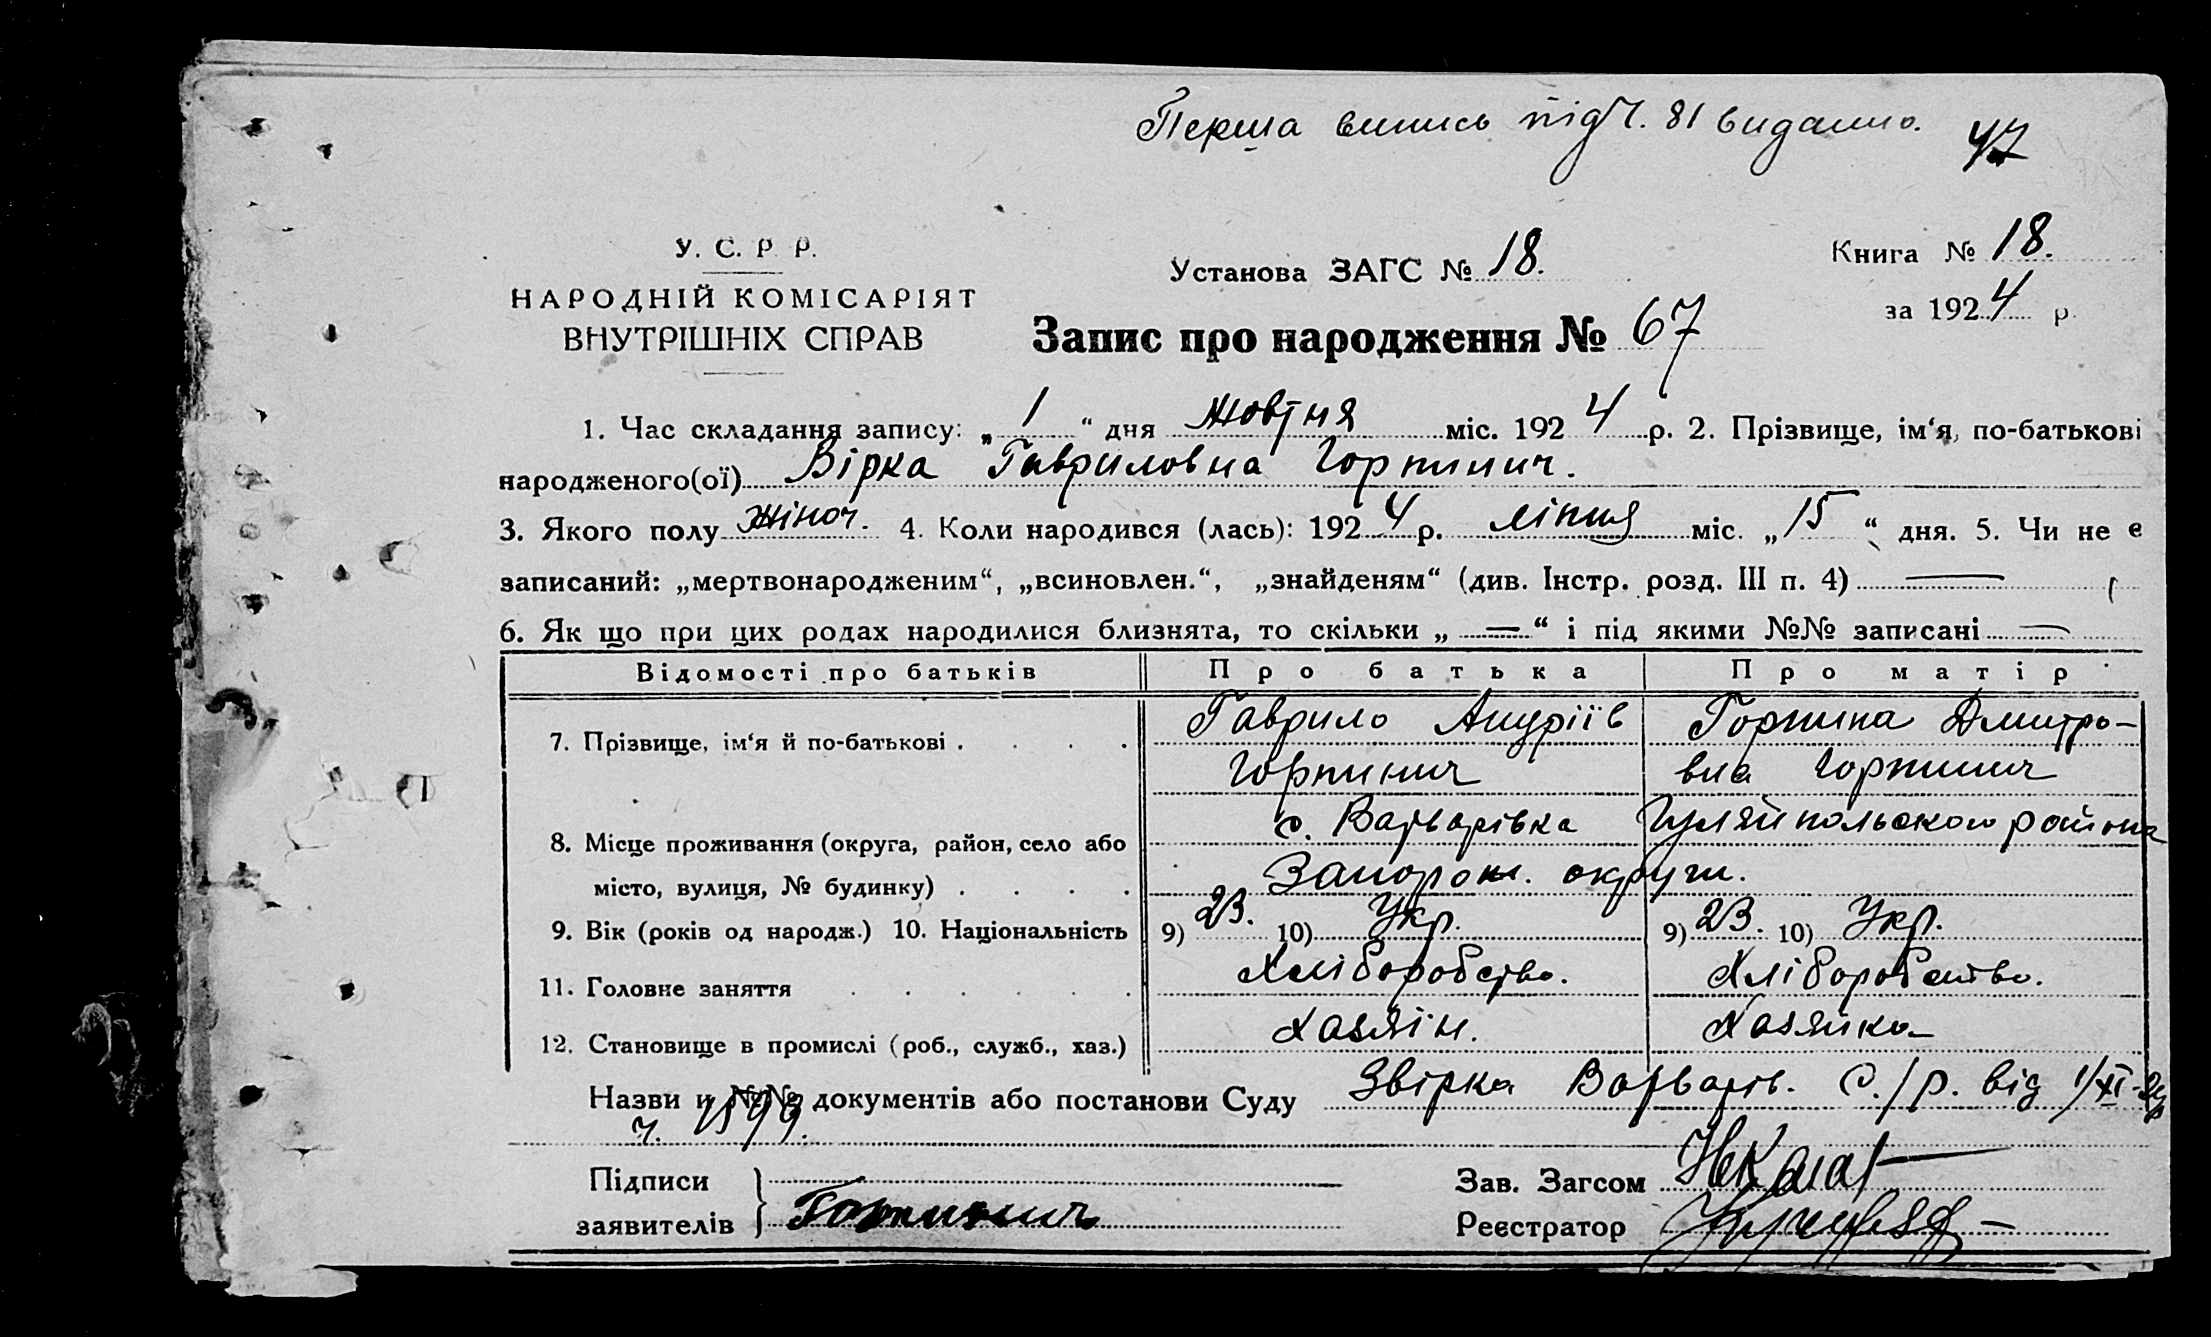 Перша випись під Ч. 81 видана.
47
У. С. Р. Р.
НАРОДНІЙ КОМІСАРІЯТ
ВНУТРІШНІХ СПРАВ
Установа ЗАГС № 18.
Книга № 18.
за 1924 р.
Запис про народження № 67
1. Час складання запису: „ 1 “ дня Жовтня міс. 1924 р. 2. Прізвище, ім‘я, по-батькові
народженого(ої) Вірка Гавриловна Горпинич.
3. Якого полу жіноч. 4. Коли народився (лась): 1924 р. ліпня міс. „ 15 “ дня. 5. Чи не є
записаний: „мертвонародженим“, „всиновлен.“, „знайденям“ (див. Інстр. розд. III п. 4) —
6. Як що при цих родах народилися близнята, то скільки „ — “ і під якими №№ записані —
Відомості про батьків Про батька Про матір
7. Прізвище, ім‘я й по-батькові . . . . Гаврило Андріїв Горпина Дмитро-
Горпинич вна Горпинич
с. Варварівка Гуляйпольского района
8. Місце проживання (округа, район, село або
місто, вулиця, № будинку) . . . . Запорож. округи.
9. Вік (років од народж.) 10. Національність 9) 23. 10) Укр. 9) 23. 10) Укр.
11. Головне заняття . . . . . . Хліборобство. Хліборобство.
12. Становище в промислі (роб., служб., хаз.) Хазяін. Хазяйка
Назви и №№ документів або постанови Суду Звірка Варварів. С./р. від 1/XI-24р
ч. 1599.
Підписи
заявителів Горпинич
Зав. Загсом
Реєстратор